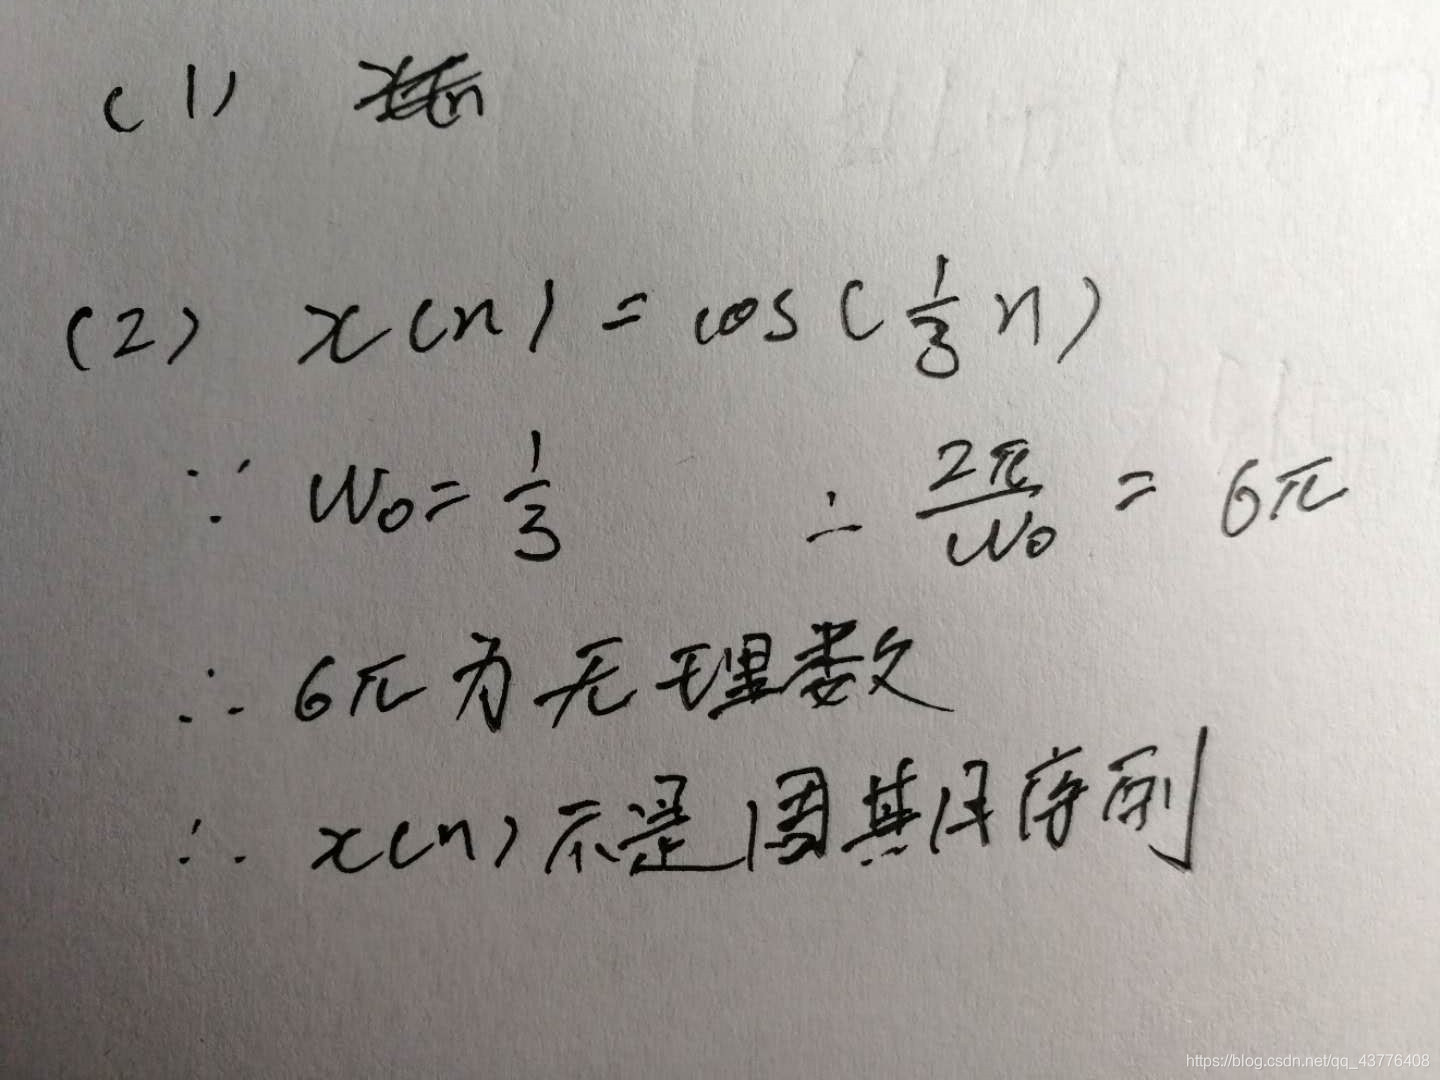 (1)
(2) x(n) = cos(1/3 n)
∵ W₀ = 1/3 ∴ 2π/W₀ = 6π
∴ 6π为无理数
∴ x(n)不是周期序列
https://blog.csdn.net/qq_43776408